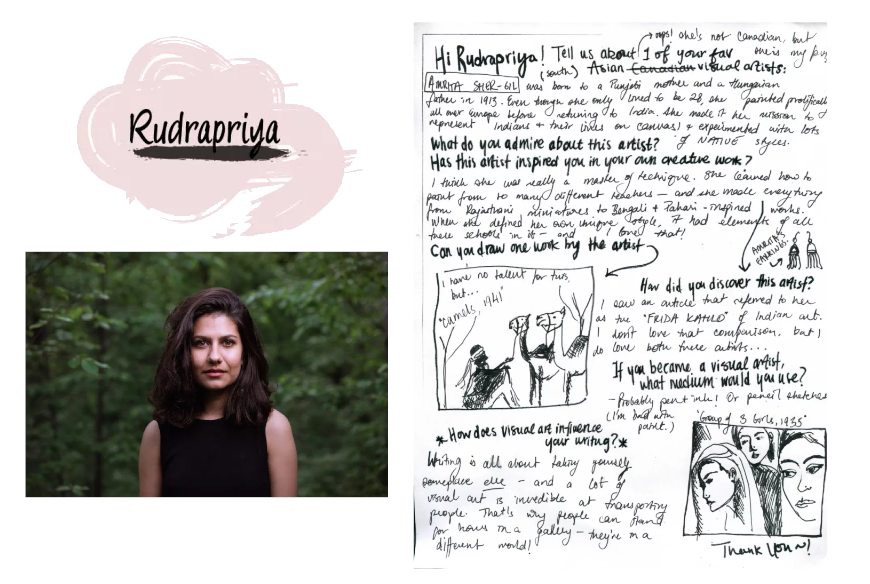 Rudrapriya
→ oops! she's not Canadian, but
she's my
Hi Rudrapriya! Tell us about 1 of your fav
(south) Asian Canadian visual artists:
AMRITA SHER-GIL was born to a Punjabi mother and a Hungarian
father in 1913. Even though she only lived to be 28, she painted prolifically
all over Europe before returning to India. She made it her mission to
represent Indians + their lives on canvas! & experimented with lots
of NATIVE styles.
What do you admire about this artist?
Has this artist inspired you in your own creative work?
I think she was really a master of technique. She learned how to
paint from so many different teachers – and she made everything
from Rajasthani miniatures to Bengali & Pahari-inspired works.
When she defined her own unique style, it had elements of all
these schools in it – and I love that!
Can you draw one work by the artist
AMRITA'S
EARRINGS
I have no talent for this,
but...
"Camels, 1941"
How did you discover this artist?
I saw an article that referred to her
as the "FRIDA KAHLO" of Indian art.
I don't love that comparison, but I
do love both these artists...
If you became a visual artist,
what medium would you use?
– Probably pen + ink! Or pencil sketches
(I'm bad with
paint.)
"Group of 3 Girls, 1935"
*How does visual art influence
your writing?*
Writing is all about taking yourself
someplace else – and a lot of
visual art is incredible at transporting
people. That's why people can stand
for hours in a gallery – they're in a
different world!
Thank you ~!